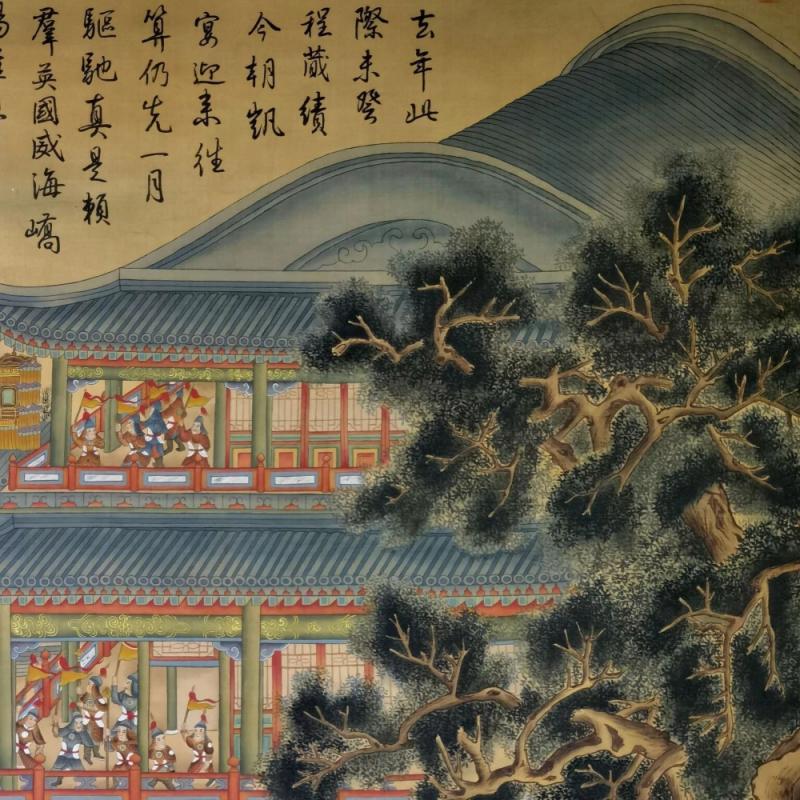 去年此
際未發
程蕆績
今朝凱
宴迎来往
算仍先一月
驅馳真是賴
羣英國威海嶠